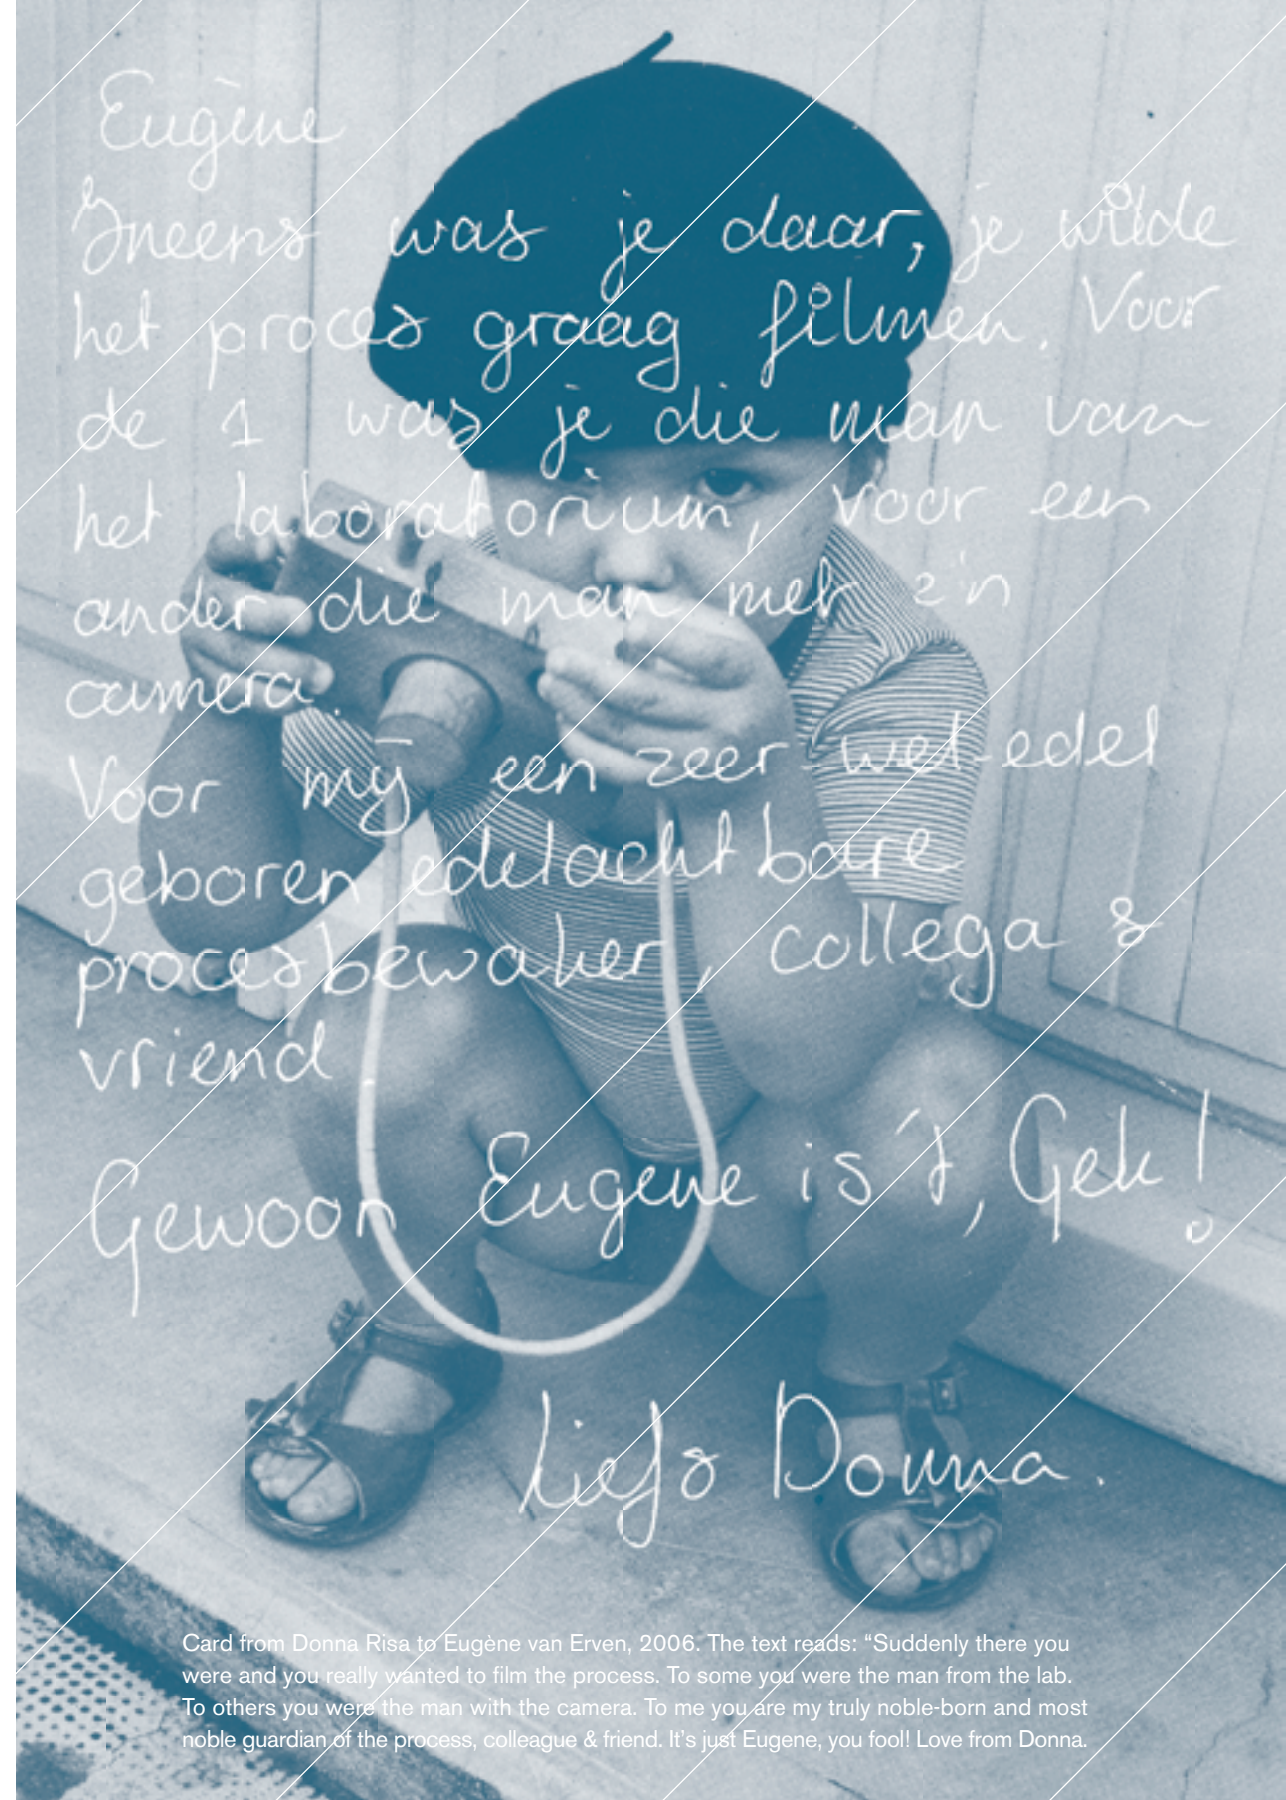 Eugène
Ineens was je daar, je wilde
het proces graag filmen. Voor
de 1 was je die man van
het laboratorium, voor een
ander die man met z'n
camera.
Voor mij een zeer wel edel
geboren edelachtbare
procesbewaker, collega &
vriend
Gewoon Eugene is 't, Gek!
Liefs Donna.
Card from Donna Risa to Eugène van Erven, 2006. The text reads: “Suddenly there you
were and you really wanted to film the process. To some you were the man from the lab.
To others you were the man with the camera. To me you are my truly noble-born and most
noble guardian of the process, colleague & friend. It’s just Eugene, you fool! Love from Donna.